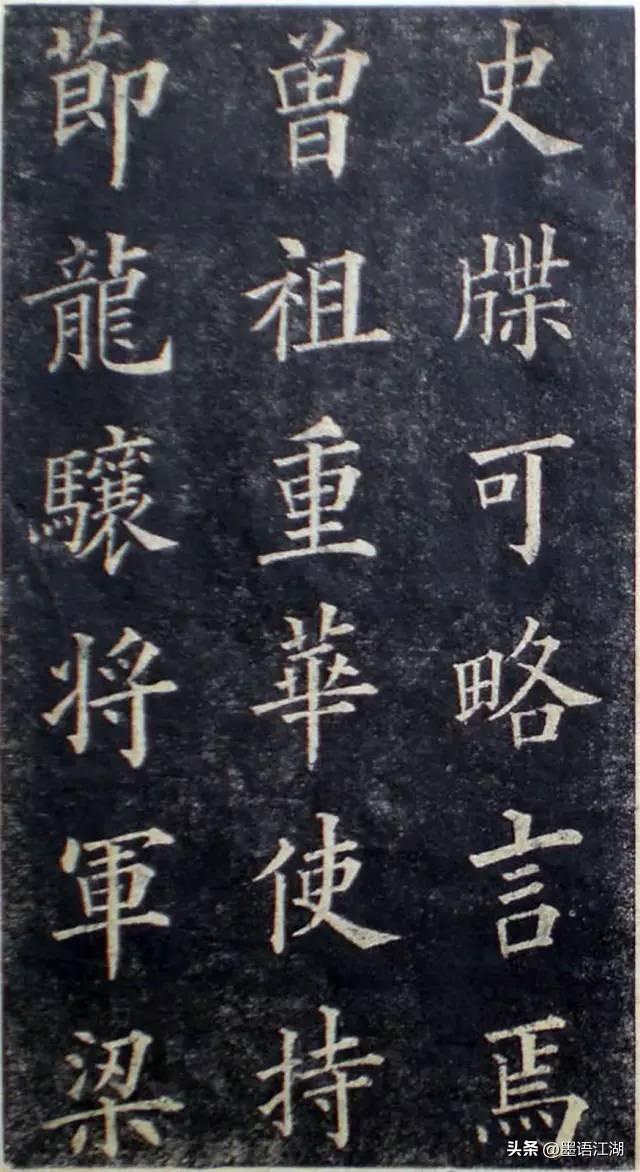 史牒可略言焉
曾祖重華使持
節龍驤将軍梁
头条 @墨语江湖